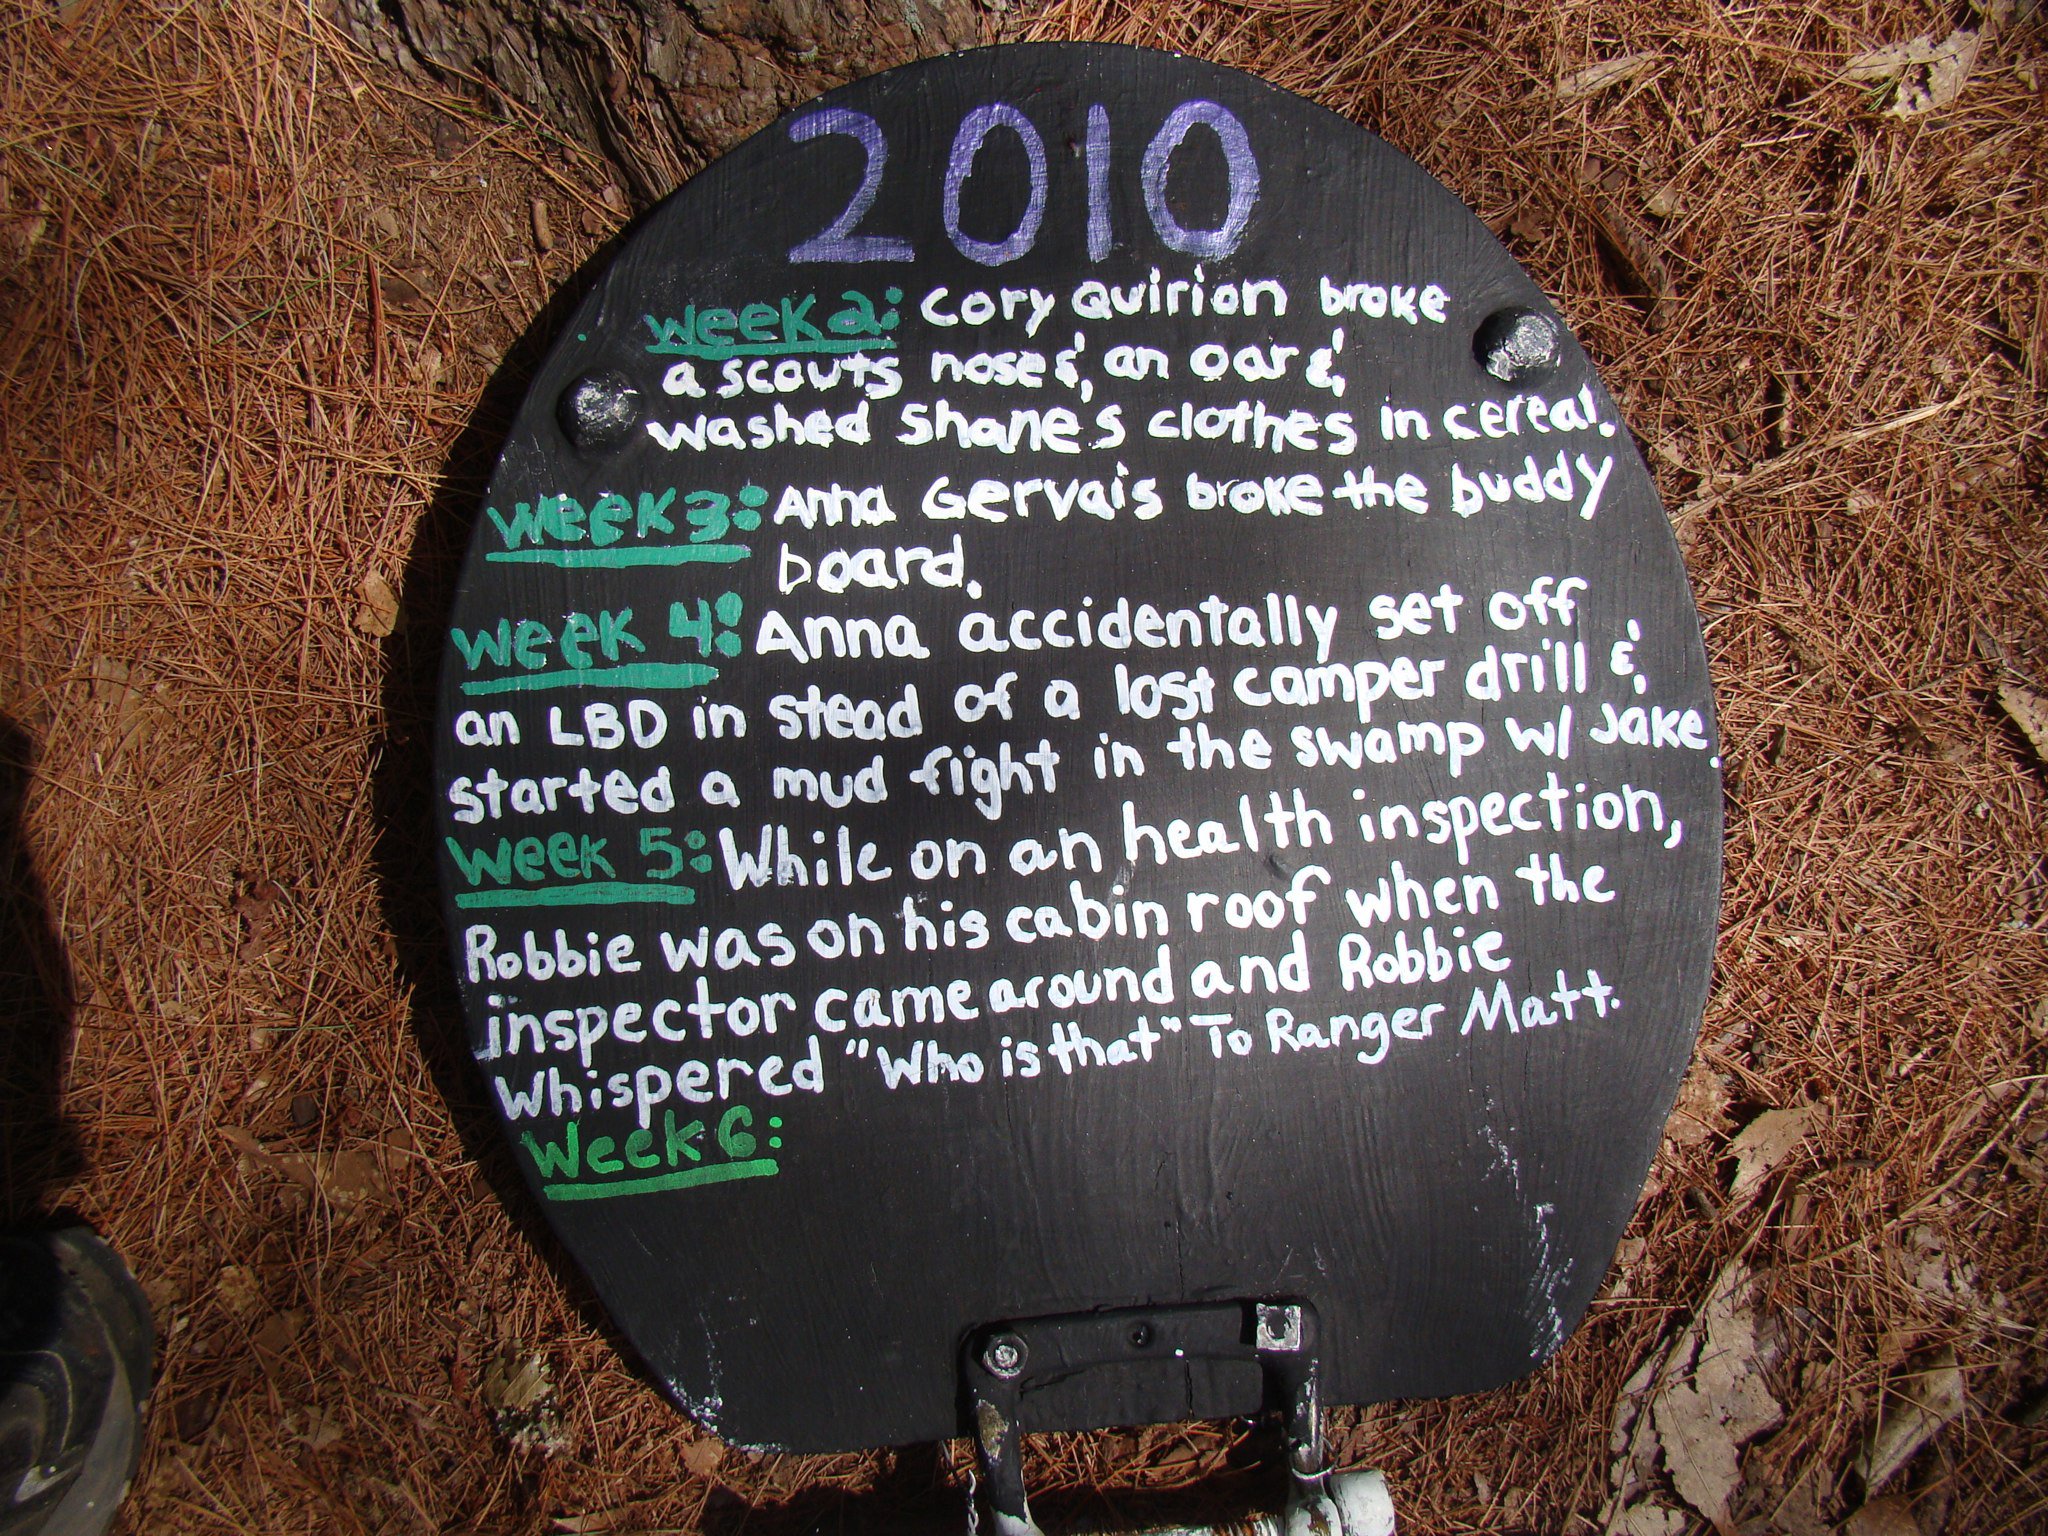 2010
Week 2: Cory Quirion broke
a scouts nose &, an oar &,
washed Shane's clothes in cereal.
Week 3: Anna Gervais broke the buddy
board.
Week 4: Anna accidentally set off
an LBD in stead of a lost camper drill &
started a mud fight in the swamp w/ Jake.
Week 5: While on an health inspection,
Robbie was on his cabin roof when the
inspector came around and Robbie
Whispered "Who is that" To Ranger Matt.
Week 6: